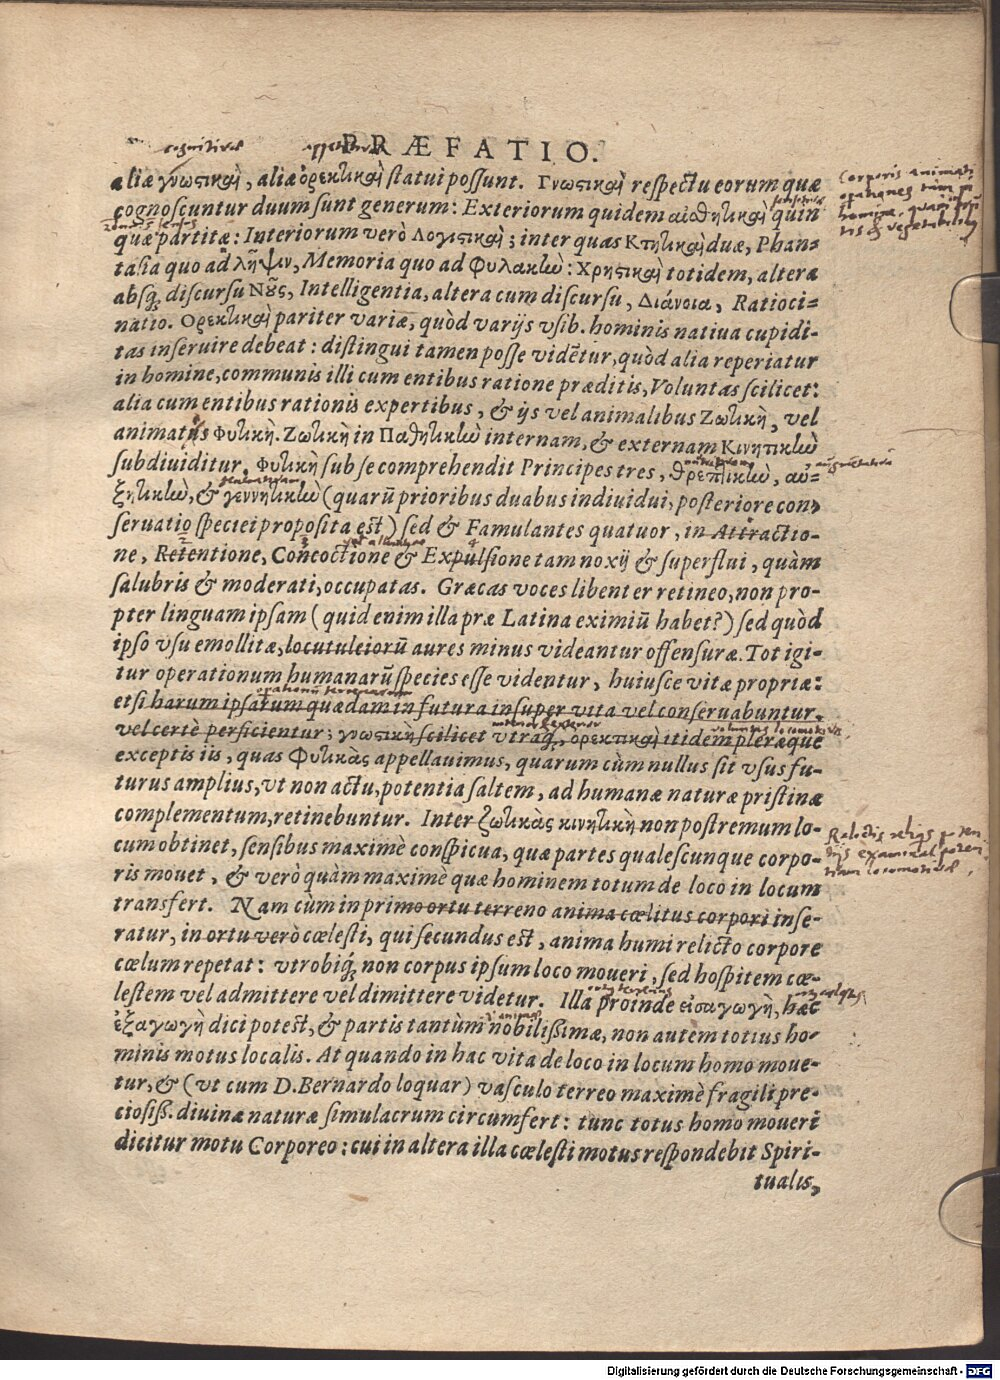 cognitivae appetitivae
PRÆFATIO.
aliæ γνωστικαὶ, aliæ ὀρεκτικαὶ statui possunt. Γνωστικαὶ respectu eorum quæ
cognoscuntur duum sunt generum: Exteriorum quidem αἰσθητικαὶ quin
quæ partitæ: Interiorum verò Λογιστικαὶ; inter quas Κτητικαὶ duæ, Phan=
tasia quo ad λῆψιν, Memoria quo ad Φυλακτικὼ: Χρηστικαὶ totidem, altera
absq; discursu Νοῦς, Intelligentia, altera cum discursu, Διάνοια, Ratioci=
natio. Ορεκτικαὶ pariter variæ, quòd varijs vsib. hominis natiua cupidi-
tas inseruire debeat: distingui tamen posse vidētur, quòd alia reperiatur
in homine, communis illi cum entibus ratione præditis, Voluntas scilicet:
alia cum entibus rationis expertibus, & ijs vel animalibus Ζωτικὴ, vel
animatis Φυτικὴ. Ζωτικὴ in Παθητικὼ internam, & externam Κινητικὼ
subdiuiditur. Φυτικὴ sub se comprehendit Principes tres, θρεπτικὼ, αὐ=
ξητικὼ, & γεννητικὼ (quarū prioribus duabus indiuidui, posteriore con-
seruatio speciei proposita est) sed & Famulantes quatuor, in Attractio-
ne, Retentione, Concoctione & Expulsione tam noxij & superflui, quàm
salubris & moderati, occupatas. Græcas voces libenter retineo, non pro-
pter linguam ipsam (quid enim illa præ Latina eximiū habet?) sed quòd
ipso vsu emollitæ, locutuleiorū aures minus videantur offensuræ. Tot igi-
tur operationum humanarū species esse videntur, huiusce vitæ propriæ:
etsi harum ipsarum quædam in futura insuper vita vel conseruabuntur,
vel certè perficientur; γνωστικὴ scilicet vtraq;, ὀρεκτικαὶ itidem pleræque
exceptis iis, quas Φυτικὰς appellauimus, quarum cùm nullus sit vsus fu-
turus amplius, vt non actu, potentia saltem, ad humanæ naturæ pristinæ
complementum, retinebuntur. Inter ζωτικὰς κινητικὴ non postremum lo-
cum obtinet, sensibus maximè conspicua, quæ partes qualescunque corpo-
ris mouet, & verò quàm maximè quæ hominem totum de loco in locum
transfert. Nam cùm in primo ortu terreno anima cœlitus corpori inse-
ratur, in ortu verò cœlesti, qui secundus est, anima humi relicto corpore
cœlum repetat: vtrobiq; non corpus ipsum loco moueri, sed hospitem cœ-
lestem vel admittere vel dimittere videtur. Illa proinde εἰσαγωγὴ, hæc
ἐξαγωγὴ dici potest, & partis tantùm nobilissimæ, non autem totius ho-
minis motus localis. At quando in hac vita de loco in locum homo moue-
tur, & (vt cum D. Bernardo loquar) vasculo terreo maximè fragili pre-
ciosiss. diuinæ naturæ simulacrum circumfert: tunc totus homo moueri
dicitur motu Corporeo: cui in altera illa cœlesti motus respondebit Spiri-
tualis,
Digitalisierung gefördert durch die Deutsche Forschungsgemeinschaft - DFG